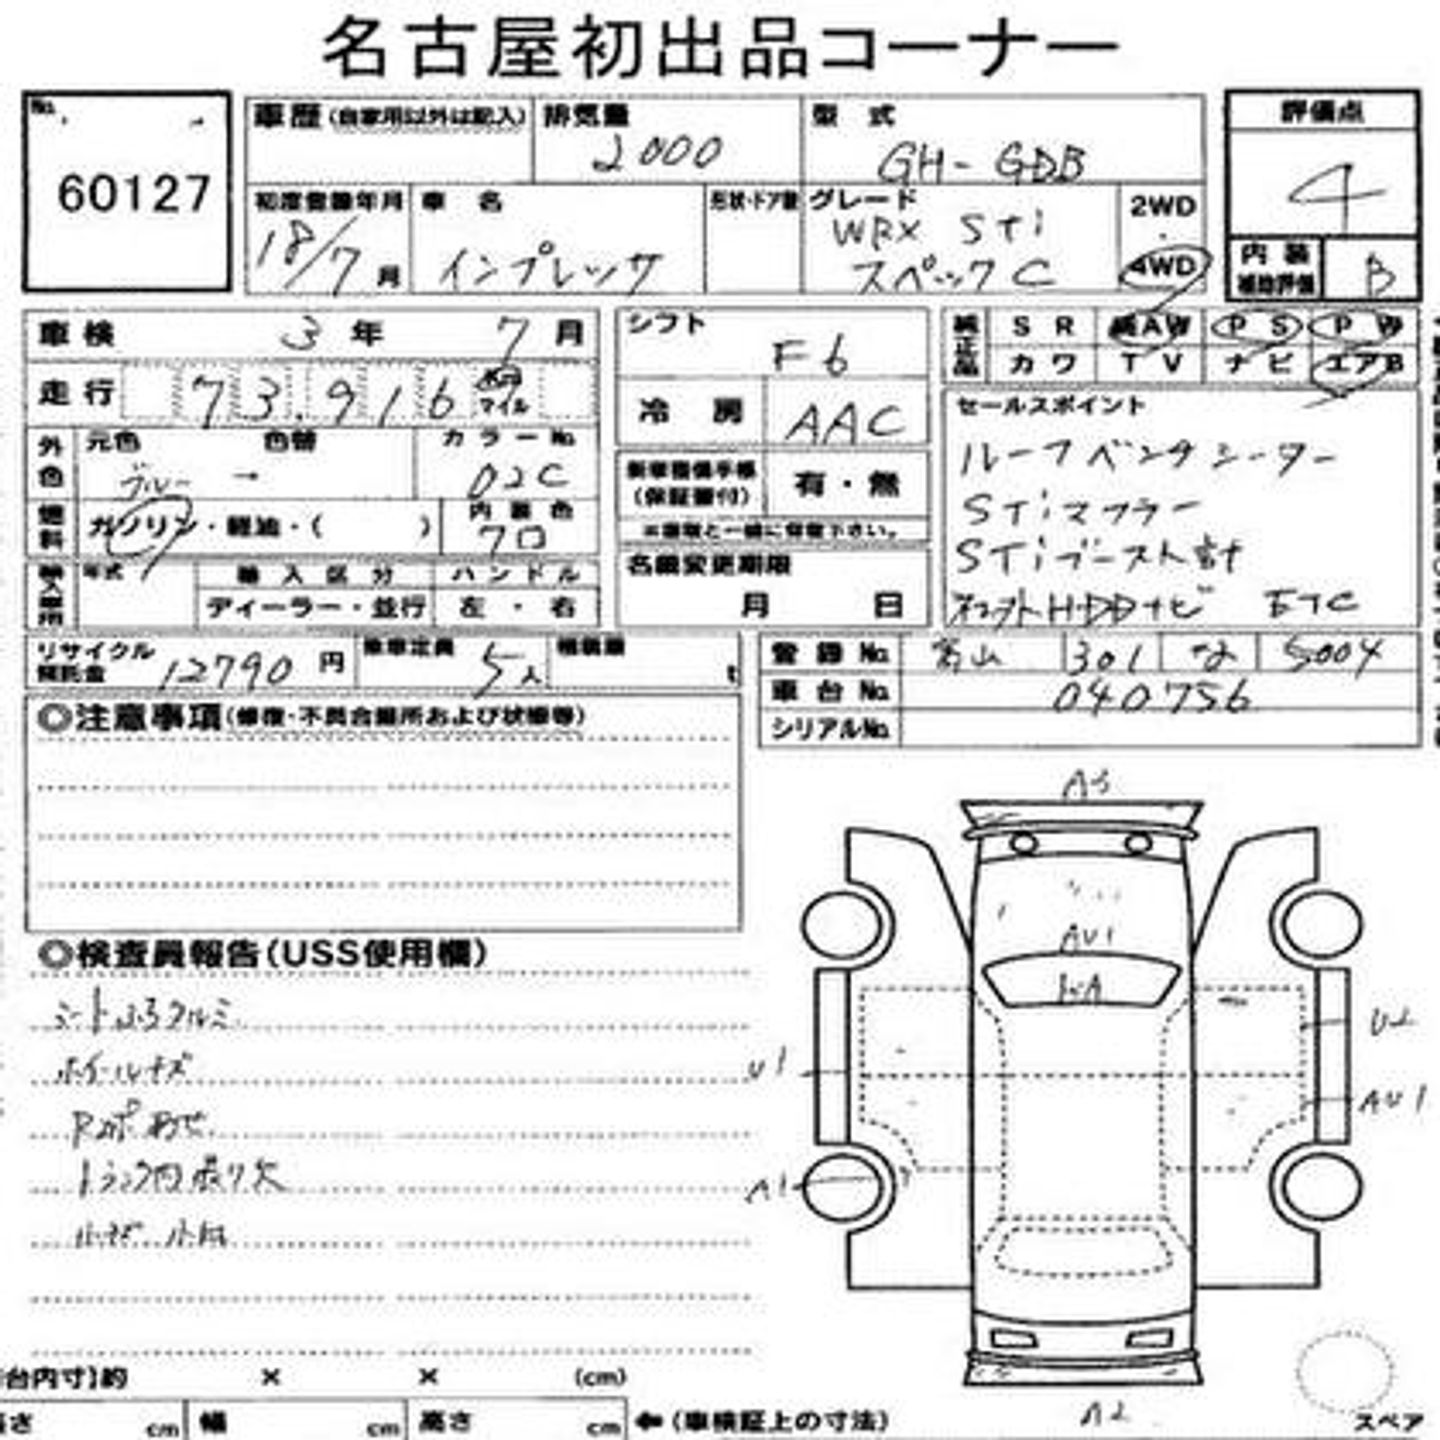 名古屋初出品コーナー
No.
60127
車歴(自家用以外は記入) 排気量 2000 型式 GH-GDB
評価点 4
初度登録年月 18/7月 車名 インプレッサ 形状・ドア数 グレード WRX STi スペックC 2WD 4WD
内装補助評価 B
車検 3年 7月
走行 73.916 マイル
外色 元色 ブルー → 色替 カラーNo. 02C
燃料 ガソリン・軽油・( ) 内装色 クロ
輸入車 年式 輸入区分 ディーラー・並行 ハンドル 左・右
シフト F6
冷房 AAC
新車整備手帳(保証書付) 有・無
※書類と一緒に保管下さい。
名義変更期限 月 日
純正品 SR 純AW PS PW
カワ TV ナビ エアB
セールスポイント
ルーフベンチレーター
STiマフラー
STiブースト計
HDDナビ ETC
リサイクル預託金 12790円 乗車定員 5人 積載量 t
登録No. 富山 301 な 5004
車台No. 040756
シリアルNo.
◎注意事項(修復・不具合箇所および状態等)
◎検査員報告(USS使用欄)
ホイールキズ
トランク内張り欠
A3
AU1
U1
U2
AU1
A1
A2
スペア
台内寸]約 × × (cm)
高さ cm 幅 cm 高さ cm ←(車検証上の寸法)